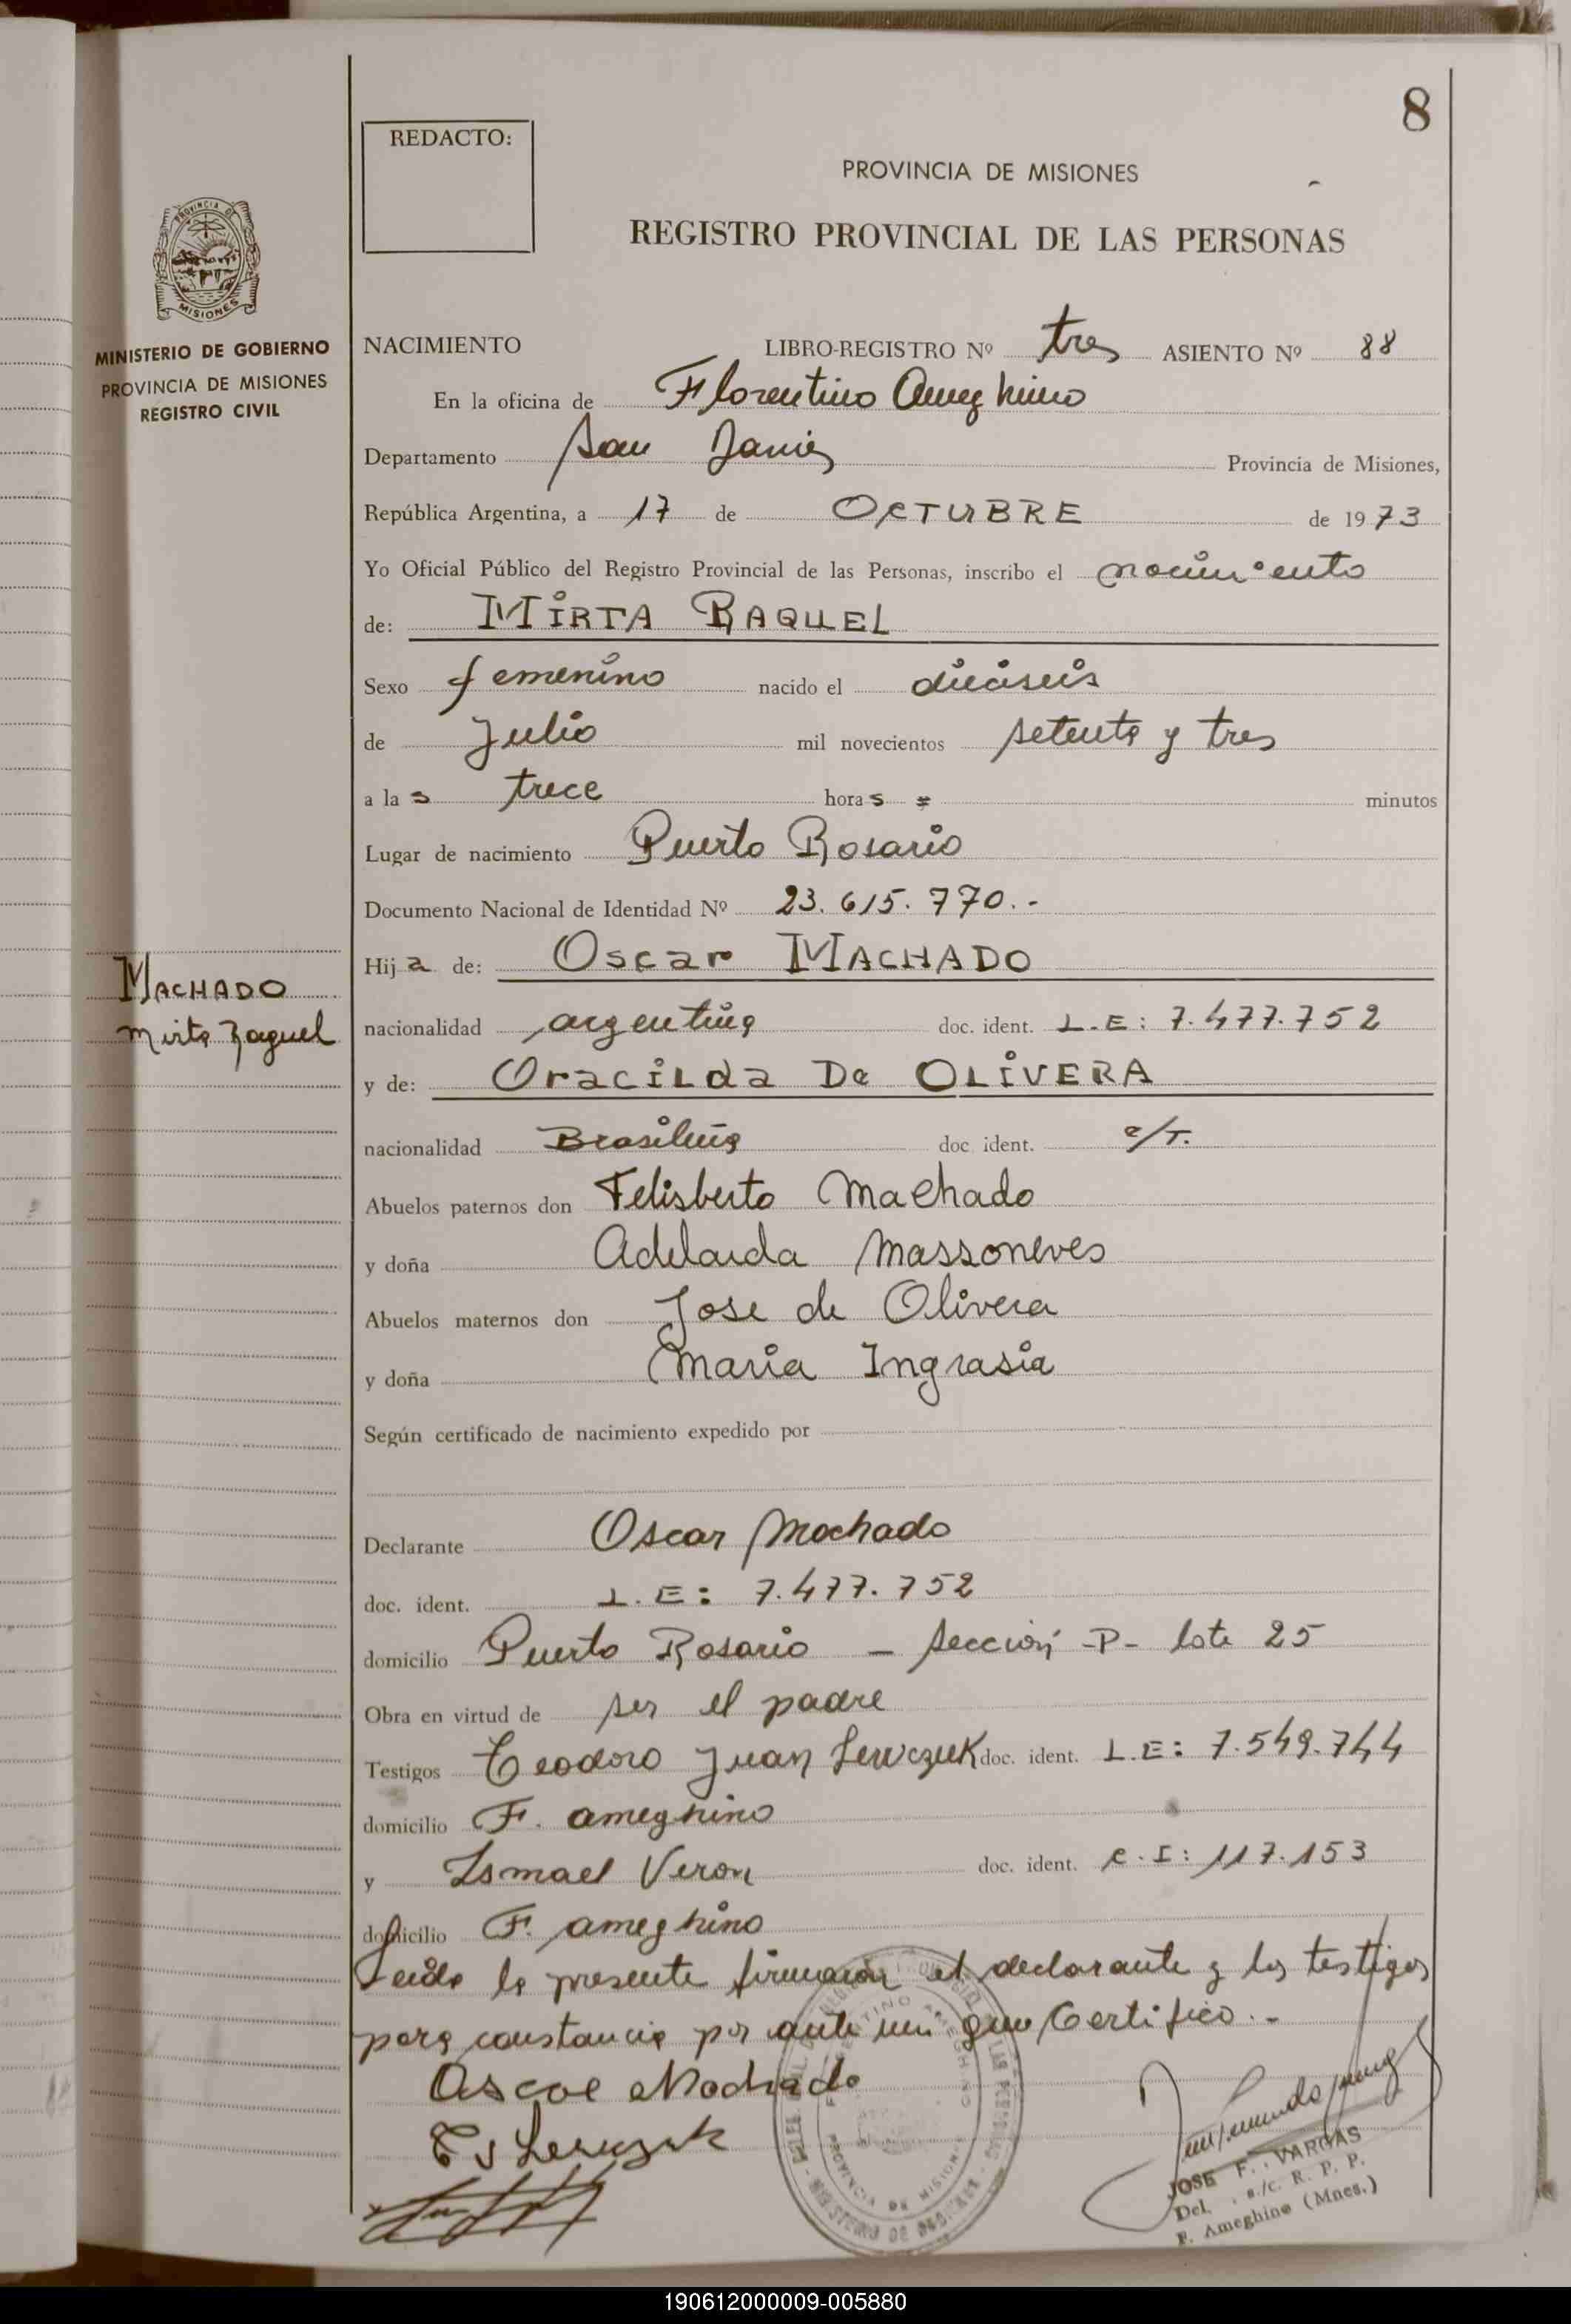 8
REDACTO:
PROVINCIA DE MISIONES
REGISTRO PROVINCIAL DE LAS PERSONAS
PROVINCIA DE
MISIONES
MINISTERIO DE GOBIERNO
PROVINCIA DE MISIONES
REGISTRO CIVIL
NACIMIENTO LIBRO-REGISTRO Nº tres ASIENTO Nº 88
En la oficina de Florentino Ameghino
Departamento San Javier Provincia de Misiones,
República Argentina, a 17 de OCTUBRE de 1973
Yo Oficial Público del Registro Provincial de las Personas, inscribo el nacimiento
de: MIRTA RAQUEL
Sexo femenino nacido el dieciseis
de Julio mil novecientos setenta y tres
a las trece horas = minutos
Lugar de nacimiento Puerto Rosario
Documento Nacional de Identidad Nº 23.615.770.-
Hija de: Oscar MACHADO
MACHADO
Mirta Raquel
nacionalidad argentina doc. ident. L.E: 7.477.752
y de: Oracilda De OLIVERA
nacionalidad Brasileña doc. ident. c/T.
Abuelos paternos don Felisberto Machado
y doña Adelaida Massoneves
Abuelos maternos don Jose de Olivera
y doña Maria Ingrasia
Según certificado de nacimiento expedido por
Declarante Oscar Machado
doc. ident. L.E: 7.477.752
domicilio Puerto Rosario - sección -P- lote 25
Obra en virtud de ser el padre
Testigos Teodoro Juan Lewczuk doc. ident. L.E: 7.549.744
domicilio F. Ameghino
y Ismael Veron doc. ident. C.I: 117.153
domicilio F. Ameghino
Leida la presente firmarón el declarante y los testigos
para constancia por ante mi que Certifico.-
Oscar Machado
JOSE F. VARGAS
Del. s./c. R. P. P.
F. Ameghino (Mnes.)
PROVINCIA DE MISIONES
190612000009-005880